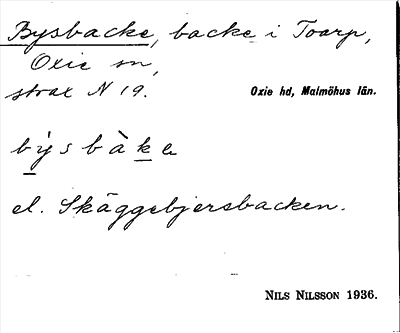 Bysbacke, backe i Toarp,
Oxie sn,
strax N 19.
Oxie hd, Malmöhus län.
býsbàke
el. Skäggebjersbacken.
NILS NILSSON 1936.